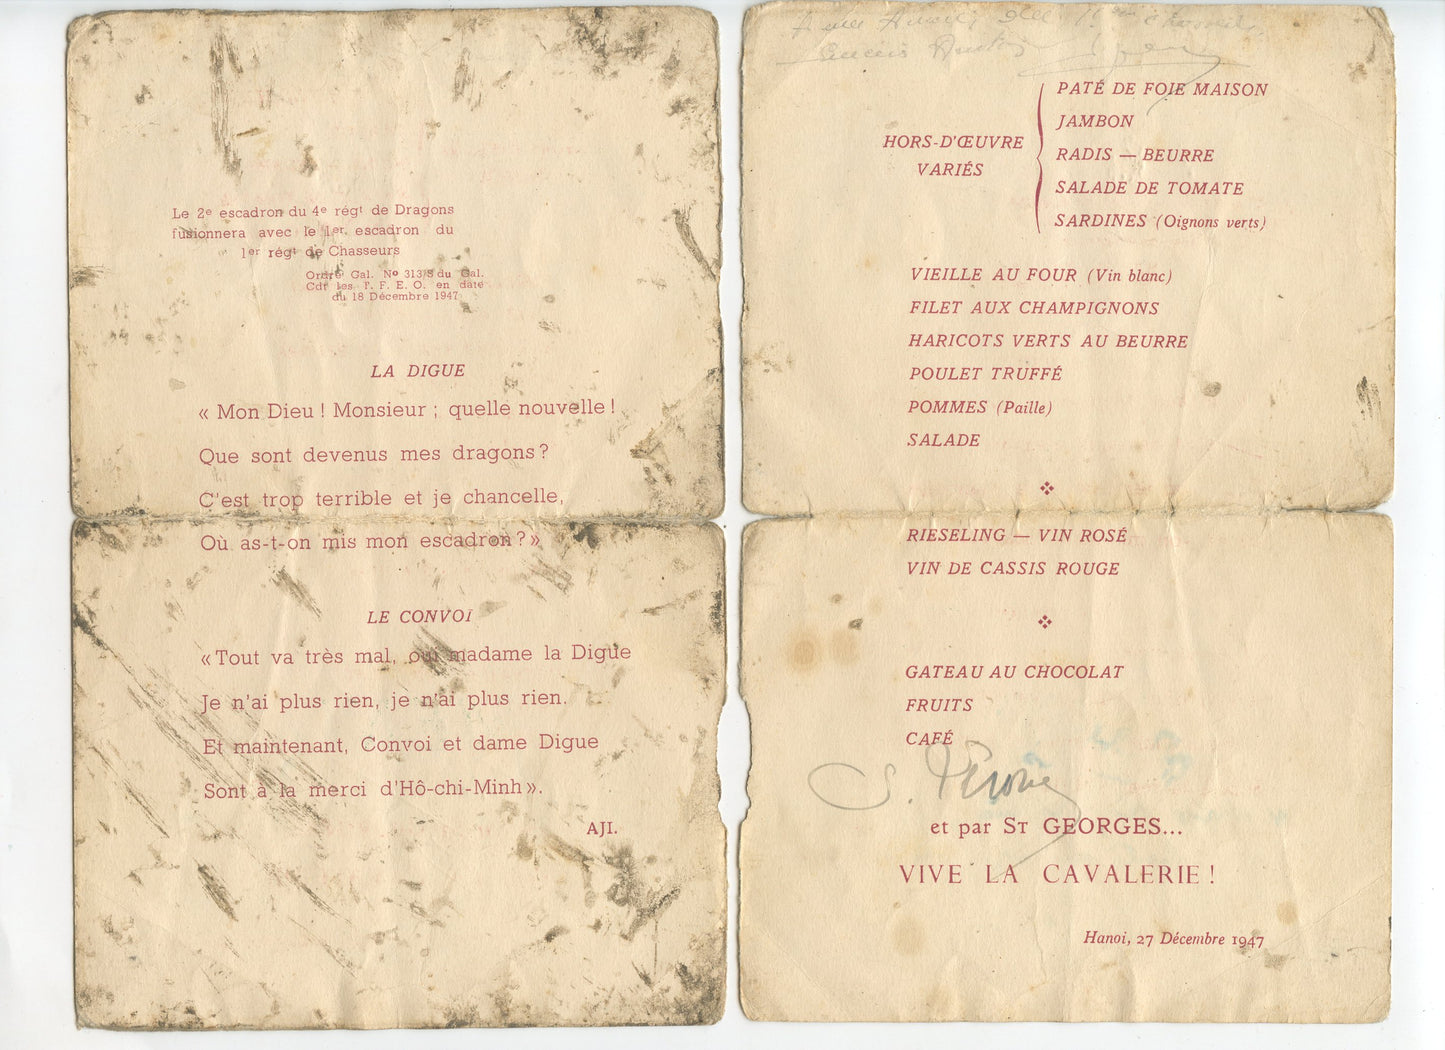 Le 2e escadron du 4e régt de Dragons
fusionnera avec le 1er. escadron du
1er régt de Chasseurs
Ordre Gal. No 313/S du Gal.
Cdt les F. F. E. O. en date
du 18 Décembre 1947
LA DIGUE
« Mon Dieu ! Monsieur ; quelle nouvelle !
Que sont devenus mes dragons ?
C'est trop terrible et je chancelle,
Où as-t-on mis mon escadron ? »
LE CONVOI
« Tout va très mal, oui madame la Digue
Je n'ai plus rien, je n'ai plus rien.
Et maintenant, Convoi et dame Digue
Sont à la merci d'Hô-chi-Minh ».
AJI.
HORS-D'ŒUVRE
VARIÉS
PATÉ DE FOIE MAISON
JAMBON
RADIS — BEURRE
SALADE DE TOMATE
SARDINES (Oignons verts)
VIEILLE AU FOUR (Vin blanc)
FILET AUX CHAMPIGNONS
HARICOTS VERTS AU BEURRE
POULET TRUFFÉ
POMMES (Paille)
SALADE
RIESELING — VIN ROSÉ
VIN DE CASSIS ROUGE
GATEAU AU CHOCOLAT
FRUITS
CAFÉ
et par ST GEORGES...
VIVE LA CAVALERIE !
Hanoi, 27 Décembre 1947